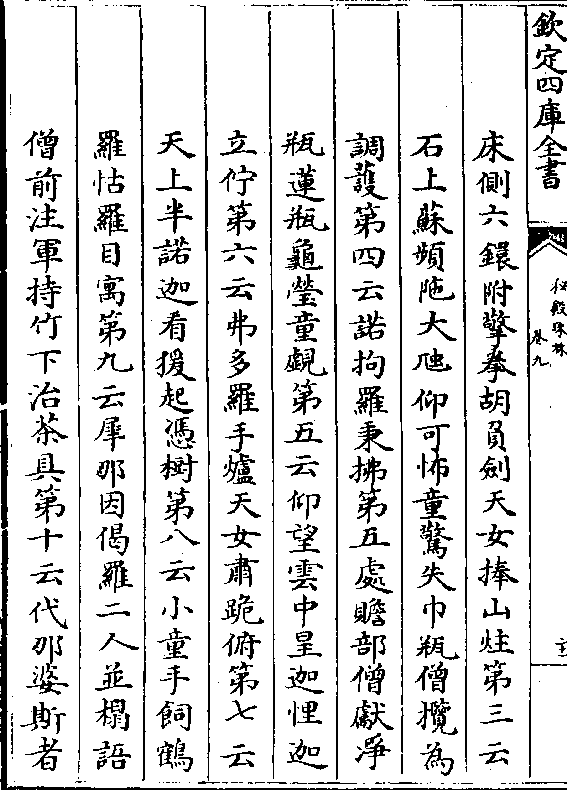 欽定四庫全書
秘殿珠林
卷九
床側六鐶附擎拳胡負劍天女捧山炷第三云
石上蘇頻陁大虺仰可怖童驚失巾瓶僧攬為
調護第四云諾拘羅秉拂第五處贍部僧獻淨
瓶蓮瓶龜瑩童覷第五云仰望雲中皇迦悝迦
立佇第六云弗多羅手爐天女肅跪俯第七云
天上半諾迦看猨起憑樹第八云小童手飼鶴
羅怙羅目寓第九云犀那因偈羅二人並榻語
僧前注軍持竹下治茶具第十云代那婆斯者